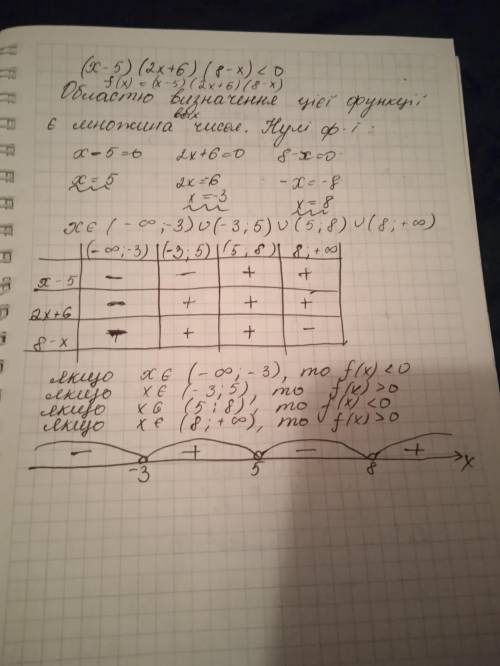 (x-5)(2x+6)(8-x)<0
f(x)=(x-5)(2x+6)(8-x)
Областю визначення цієї функції
є множина всіх чисел. Нулі ф-ї:
x-5=0 2x+6=0 8-x=0
x=5 2x=6 -x=-8
x=-3 x=8
x∈(-∞;-3)∪(-3;5)∪(5;8)∪(8;+∞)
(-∞;-3) (-3;5) (5;8) 8;+∞)
x-5 - - + +
2x+6 - + + +
8-x + + + -
якщо x∈(-∞;-3), то f(x)<0
якщо x∈(-3;5), то f(x)>0
якщо x∈(5;8), то f(x)<0
якщо x∈(8;+∞), то f(x)>0
- + - +
-3 5 8 x